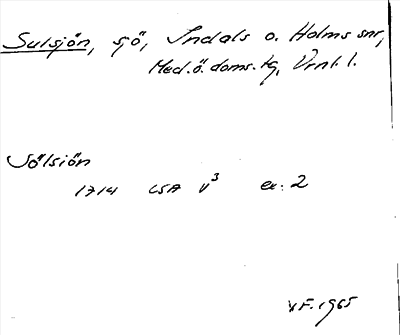 Sulsjön, sjö, Indals o. Holms snr,
Med.ö. doms. tg, Vrnl. l.
Sölsiön
1714 LSA V³ ex: 2
V.F. 1965